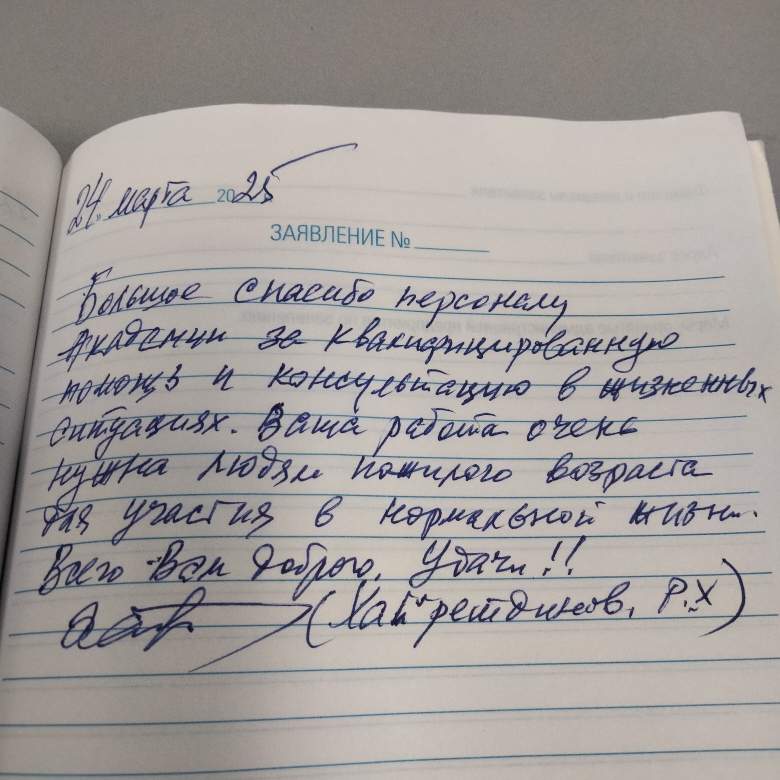 24 марта 2025
ЗАЯВЛЕНИЕ №
Большое спасибо персоналу
Академии за квалифицированную
помощь и консультацию в жизненных
ситуациях. Ваша работа очень
нужна людям пожилого возраста
для участия в нормальной жизни.
Всего Вам доброго. Удачи!!
(Хайретдинов. Р.Х)